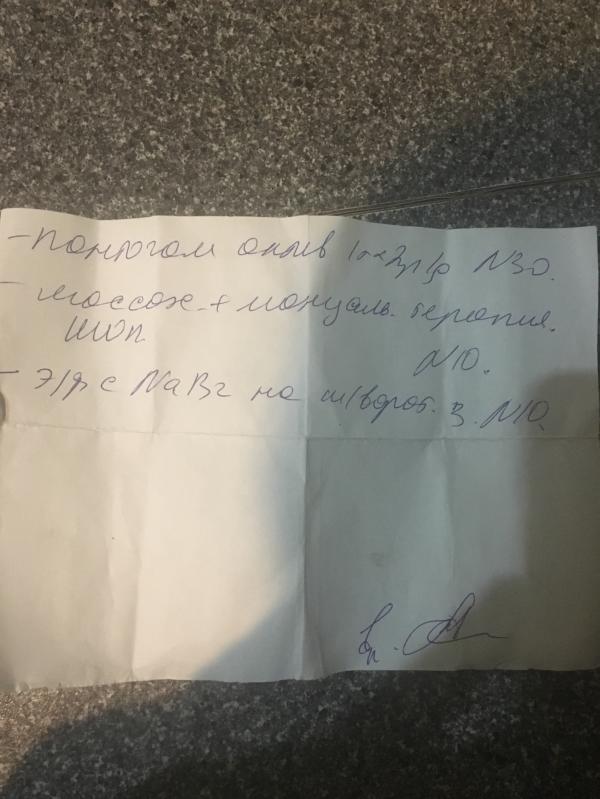 - Пантогам актив 1т х 3р/д N30.
- массаж + мануальн. терапия.
ШОП. N10.
- Э/ф с NaBr на ш/ворот. з. N10.
Вр.